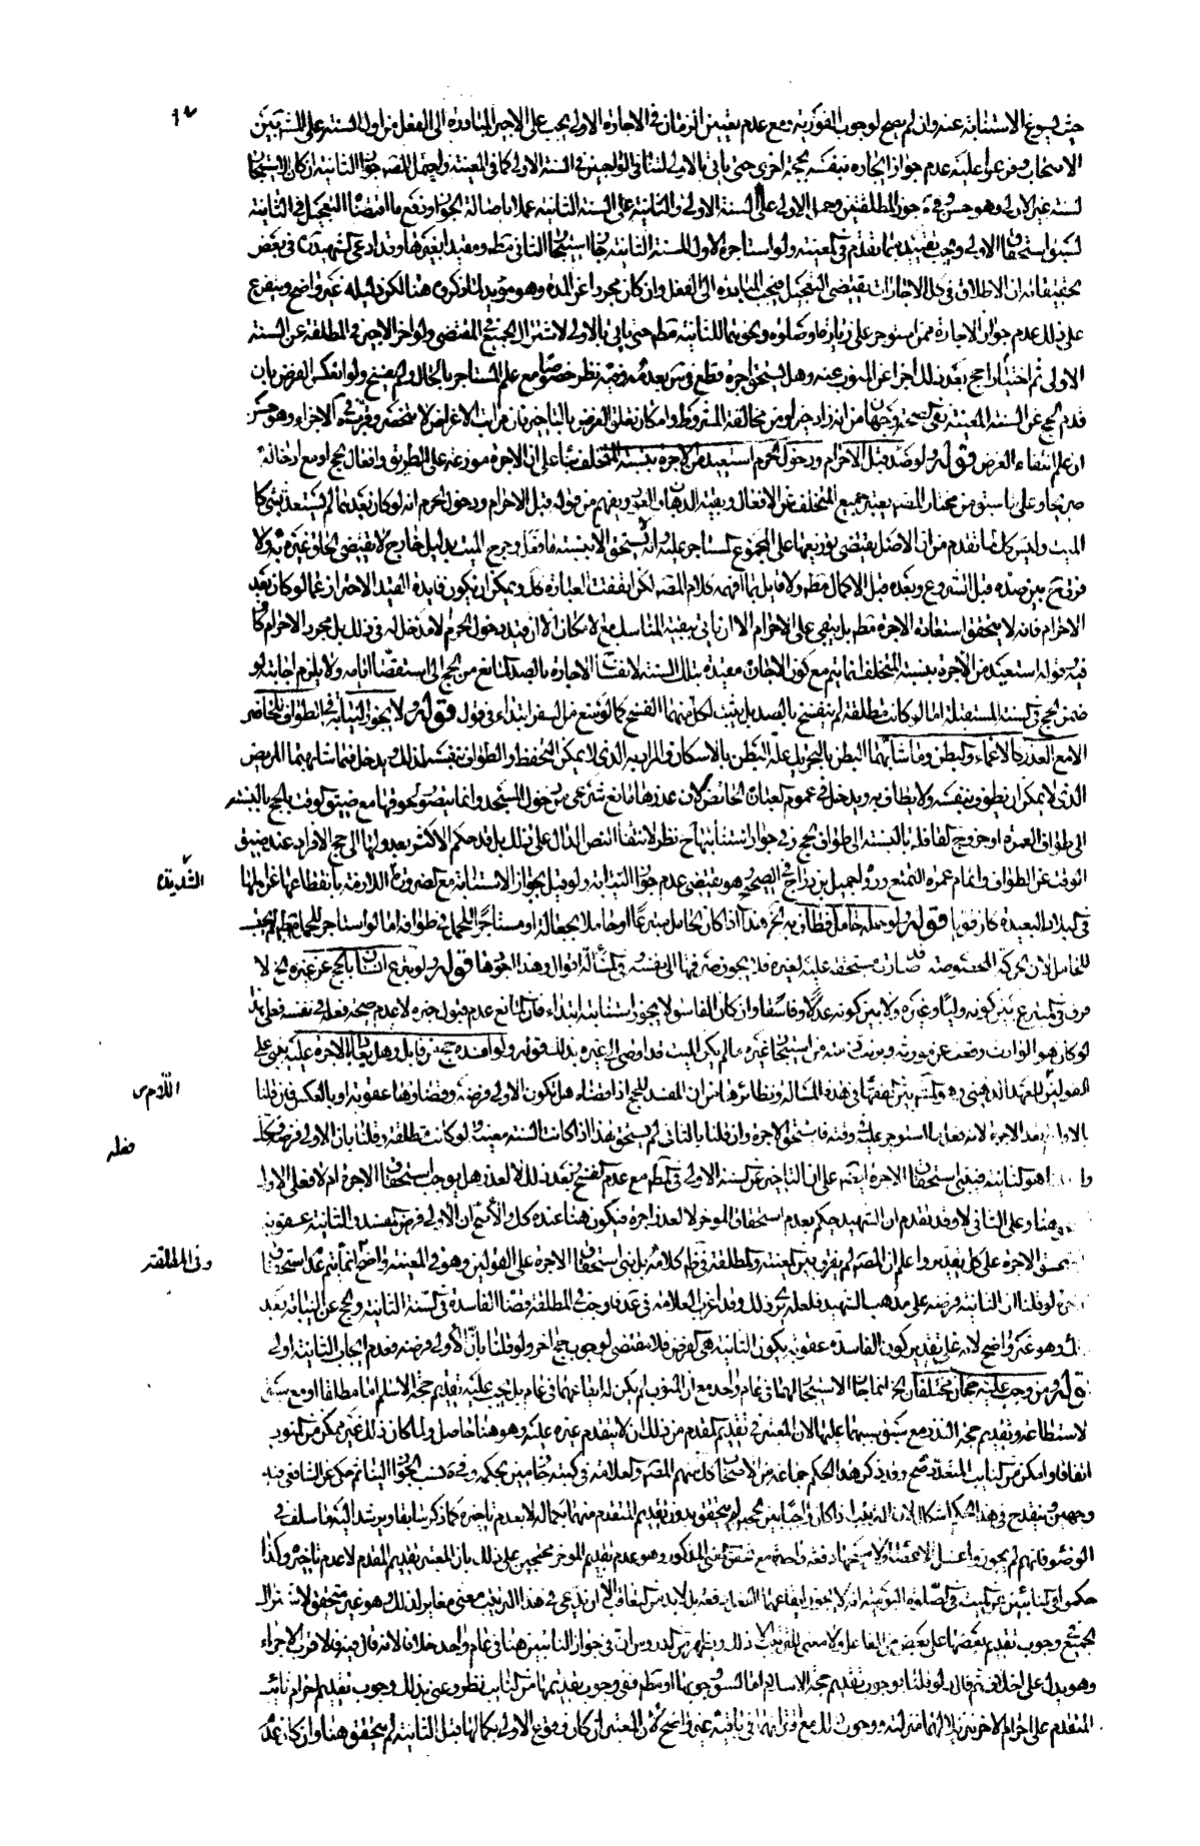 حيث يسوغ الاستنابة عنه وان لم يصح لوجوب الفورية ومع عدم تعيين الزمان في الاجارة الاولى يجب على الاجير المبادرة الى الفعل من اول السنة على
الاصحاب وفرعوا عليه عدم جواز ايجاره نفسه بحجة اخرى حتى ياتي بالاولى لتنافي الواجبين في السنة الاولى كما في المعينة واحتمل المصنف جواز الثانية ان كان الاستيجار
لسنة غير الاولى وهو حسن وفي جوز المطلقتين وحمل الاولى على السنة الاولى والثانية على السنة الثانية عملا باصالة الجواز ودفع ما اقتضاه التعجيل في الثانية
لسبق استحقاق الاولى ويجب تقييده بما تقدم في المعينة ولو استاجره الاول للسنة الثانية جاز استيجار الثاني مطلقا ومقيدا بغيرها وقد ادعى الشهيد في بعض
تحقيقاته ان الاطلاق في كل الاجارات يقتضي التعجيل فيجب المبادرة الى الفعل وان كان مجردا عن المدة وهو مؤيد لما ذكروه هنا لكن دليله غير واضح ويتفرع
على ذلك عدم جواز الاجارة ممن استوجر على زيارة او صلوة ونحوهما للثانية مطلقا حتى ياتي بالاولى لاشتراك الجميع في المقتضي ولو اخر الاجير في المطلقة عن السنة
الاولى ثم اختيارا حج بعد ذلك اجزا عن المنوب عنه وهل يستحق اجرة قطع في س بعدمه وفيه نظر خصوصا مع علم المستاجر بالحال ولم يفسخ ولو انعكس الفرض بان
قدم الحج عن السنة المعينة ففي الصحة وجهان من انه زاد خيرا ومن مخالفة الشرط وامكان تعلق الغرض بالتاخير فان مراتب الاغراض لا تنحصر وقرب في الاجزاء وهو حسن
ان علم انتفاء الغرض قوله ولو صد قبل الاحرام ودخول الحرم استعيد من الاجرة بنسبة المتخلف بناء على ان الاجرة موزعة على الطريق وافعال الحج او مع ادخاله
صريحا وعلى ما سبق من مختار المصنف يعتبر جميع المتخلف من الافعال وبقية الذهاب والعود ويفهم من قوله قبل الاحرام ودخول الحرم انه لو كان بعدهما لم يستعد شيء كما
الميت وليس كك لما تقدم من ان الاصل يقتضي توزيعها على المجموع المستاجر عليه وانه لا يستحق الا بنسبة ما فعل وخرج الميت بدليل خارج لا يقتضي الحاق غيره به ولا
فرق ح بين صده قبل الشروع وبعده قبل الاكمال مطلقا ولا قايل بما افهمه كلام المصنف لكن اتفقت العبارة كك ويمكن ان يكون فايدة القيد الاحتراز عما لو كان بعد
الاحرام فانه لا يتحقق استعادة الاجرة مطلقا بل يبقى على الاحرام الا ان ياتي ببقية المناسك مع الامكان الا ان قيد دخول الحرم لا مدخل له في ذلك بل مجرد الاحرام كاف
فيه قوله استعيد من الاجرة بنسبة المتخلف انما يتم مع كون الاجارة مقيدة بتلك السنة لانفساخ الاجارة بالصد المانع من الحج الى استقضاء ايامه ولا يلزم اجابته لو
ضمن الحج في السنة المستقبلة اما لو كانت مطلقة لم ينفسخ بالصد بل يثبت لكل منهما الفسخ كما لو منع من السفر ابتداء في قول قوله ولا يجوز النيابة في الطواف للحاضر
الا مع العذر كالاغماء والبطن وما شابههما البطن بالتحريك علة البطن بالاسكان والمراد به الذي لا يمكن التحفظ والطواف بنفسه لذلك ويدخل فيما شابههما المريض
الذي لا يمكن ان يطوف بنفسه ولا يطاف به ويدخل في عموم العبارة الحائض لان عذرها مانع شرعي من دخول المسجد وانما يتصور لحوقها مع ضيق الوقت بالحج بالنسبة
الى طواف العمرة او خروج القافلة بالنسبة الى طواف الحج وفي جواز استنابتها ح نظر لانتفاء النص الدال على ذلك بل قد حكم الاكثر بعدولها الى حج الافراد عند ضيق
الوقت عن الطواف واتمام عمرة التمتع ورد لجميل بن دراج في الصحيح وهو يقتضي عدم جواز النيابة ولو قيل بجواز الاستنابة مع الضرورة اللازمة بانقطاعها عن اهلها
الشديدة
في البلاد البعيدة كان قويا قوله ولو حمله حامل فطاف به الخ هذا اذا كان الحامل متبرعا او حاملا بجعالة او مستاجرا للحمل في طوافه اما لو استاجر للحمل مطلقا لم يحتسب
للحامل لان الحركة المخصوصة قد صارت مستحقة عليه لغيره فلا يجوز صرفها الى نفسه وفي المسألة اقوال وهذا اجودها قوله ولو تبرع انسان بالحج عن غيره الخ لا
فرق في المتبرع بين كونه وليا وغيره ولا بين كونه عدلا وفاسقا وان كان الفاسق لا يجوز استنابته ابتداء فان المانع عدم قبول خبره لا عدم صحة فعله في نفسه فعلى هذا
لو كان هو الوارث وقعت عن مورثه وبرئت ذمته من استيجار غيره ما لم يكن الميت قد اوصى الى غيره بذلك قوله ولو افسده حج من قابل وهل يعاد بالاجرة عليه يبنى على
القولين للعهد الذهني وهو المشهور بين الفقهاء في هذه المسألة ونظائرها من ان المفسد للحج اذا قضاه هل تكون الاولى فرضه وقضاؤها عقوبة او بالعكس فان قلنا
اللام س
بالاول لم يعد الاجرة لانه فعل ما استوجر عليه في وقته فاستحق الاجرة وان قلنا بالثاني لم يستحق هذا اذا كانت السنة معينة ولو كانت مطلقة وقلنا بان الاولى فرضه فكك
مطلقه
وان هو الثانية فيبنى استحقاق الاجرة ايضا على ان التاخير عن السنة الاولى في المطلقة مع عدم الفسخ بعد ذلك لا لعذر هل يوجب استحقاق الاجرة ام لا فعلى الاول
هنا وعلى الثاني لا وقد تقدم ان الشهيد حكم بعدم استحقاق المؤخر لا لعذر اجرة فيكون هنا عنده كك الا مع ان الاولى فرض المفسد والثانية عقوبة
تحقق الاجرة على كل تقدير واعلم ان المصنف لم يفرق بين المعينة والمطلقة في ظاهر كلامه بل بنى استحقاق الاجرة على القولين وهو في المعينة واضح انما يتم عدم استحقاق
وفي المطلقة
الاجرة لو قلنا ان الثانية فرضه على مذهب الشهيد فلعله يختار ذلك وقد اغرب العلامة في عد فاوجب في المطلقة قضاء الفاسدة في السنة الثانية والحج عن النيابة بعد
ذلك وهو غير واضح لانه على تقدير كون الفاسدة عقوبة يكون الثانية هي الفرض فلا مقتضى لوجوب حج اخر ولو قلنا بان الاولى فرضه فعدم ايجاب الثانية اولى
قوله ومن وجب عليه حجان مختلفان الخ انما جاز الاستيجار لهما في عام واحد مع ان المنوب لم يكن له ايقاعهما في عام بل يجب عليه تقديم حجة الاسلام اما مطلقا او مع سبق
الاستطاعة وتقديم حجة النذر مع سبق سببها عليها لان المعتبر في تقديم المقدم من ذلك ان لا يتقدم غيره عليه وهو هنا حاصل ولما كان ذلك غير ممكن من المنوب
اتفاقا وامكن من النايب المتعدد صح وقد ذكر هذا الحكم جماعة من الاصحاب كل منهم المصنف والعلامة في كتبه جازمين بحكمه وفي نسب الجواز الينا ثم حكى عن الشافعي فيه
وجهين وينقدح في هذا الحكم اشكال لان الترتيب اذا كان واجبا بين الحجين لم يتحقق بدون تقديم المتقدم منهما بكماله لا بعدم تاخيره كما ذكر سابقا ويرشد اليه ما سلف في
الوضوء فانهم لم يجوزوا غسل الاعضاء ولا مسحها دفعة واحدة مع تحقق المعنى المذكور وهو عدم تقديم المؤخر محتجين على ذلك بان المعتبر تقديم المقدم لا عدم تاخيره وكذا
حكموا في النائبين عن الميت في الصلوة اليومية انه لا يجوز ايقاعهما الفعل دفعة بل لا بد من التعاقب الا ان يدعى في هذا الترتيب معنى مغاير لذلك وهو غير متحقق لاشتراك
الجميع في وجوب تقديم بعضها على بعض من الفاعل ولا معنى للترتيب الا ذلك ويظهر من الدروس ان في جواز النائبين هنا في عام واحد خلافا لانه قال فيه والاقرب الاجزاء
وهو يدل على خلاف ثم قال ولو قلنا بوجوب تقديم حجة الاسلام اما لسبق وجوبها او مطلقا ففي وجوب تقديمها من النايب نظر وعنى بذلك وجوب تقديم احرام نائب
المتقدم على احرام الاخر تنزيلا لهما منزلته ووجوب ذلك مع اقترانهما في باقيه غير واضح لان المعتبر ان كان وقوع الاولى بكمالها قبل الثانية لم يتحقق هنا وان كان عدم